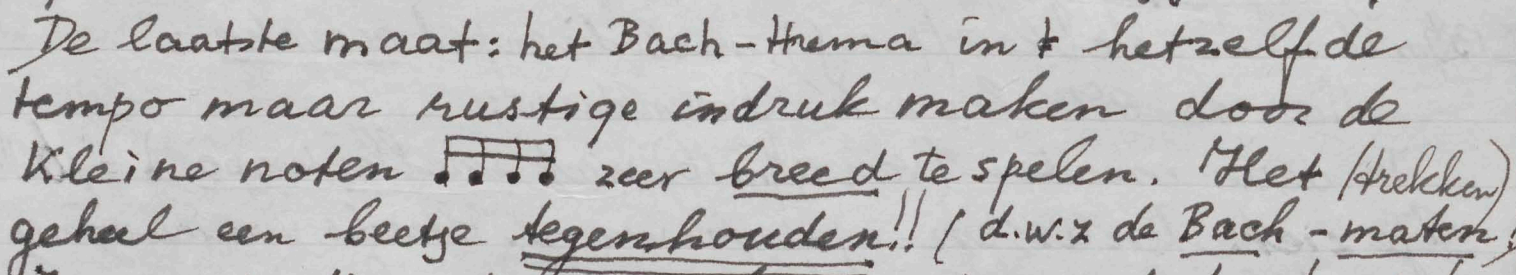 De laatste maat: het Bach-thema in hetzelfde
tempo maar rustige indruk maken door de
kleine noten zeer breed te spelen. Het (trekken)
geheel een beetje tegenhouden!! (d.w.z de Bach-maten